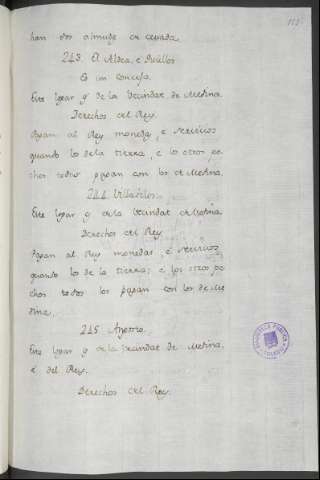 han dos almude en cepada
243. El Aldea, e Ruellos
Es un Concejo.
Este logar q.e de la Vecindat de Medina.
Derechos del Rey.
Pagan al Rey moneda, e servicios
quando los de la tierra, e los otros pe
chos todos pagan con los de Medina.
244 Villa
Este logar q.e de la Vecindat de Medina.
Derechos del Rey
Pagan al Rey monedas, e servicios
quando los de la tierra; e los otros pe
chos todos los pagan con los de Me
dina.
245
Este logar q.e de la Vecindat de Medina.
e del Rey.
Derechos del Rey.